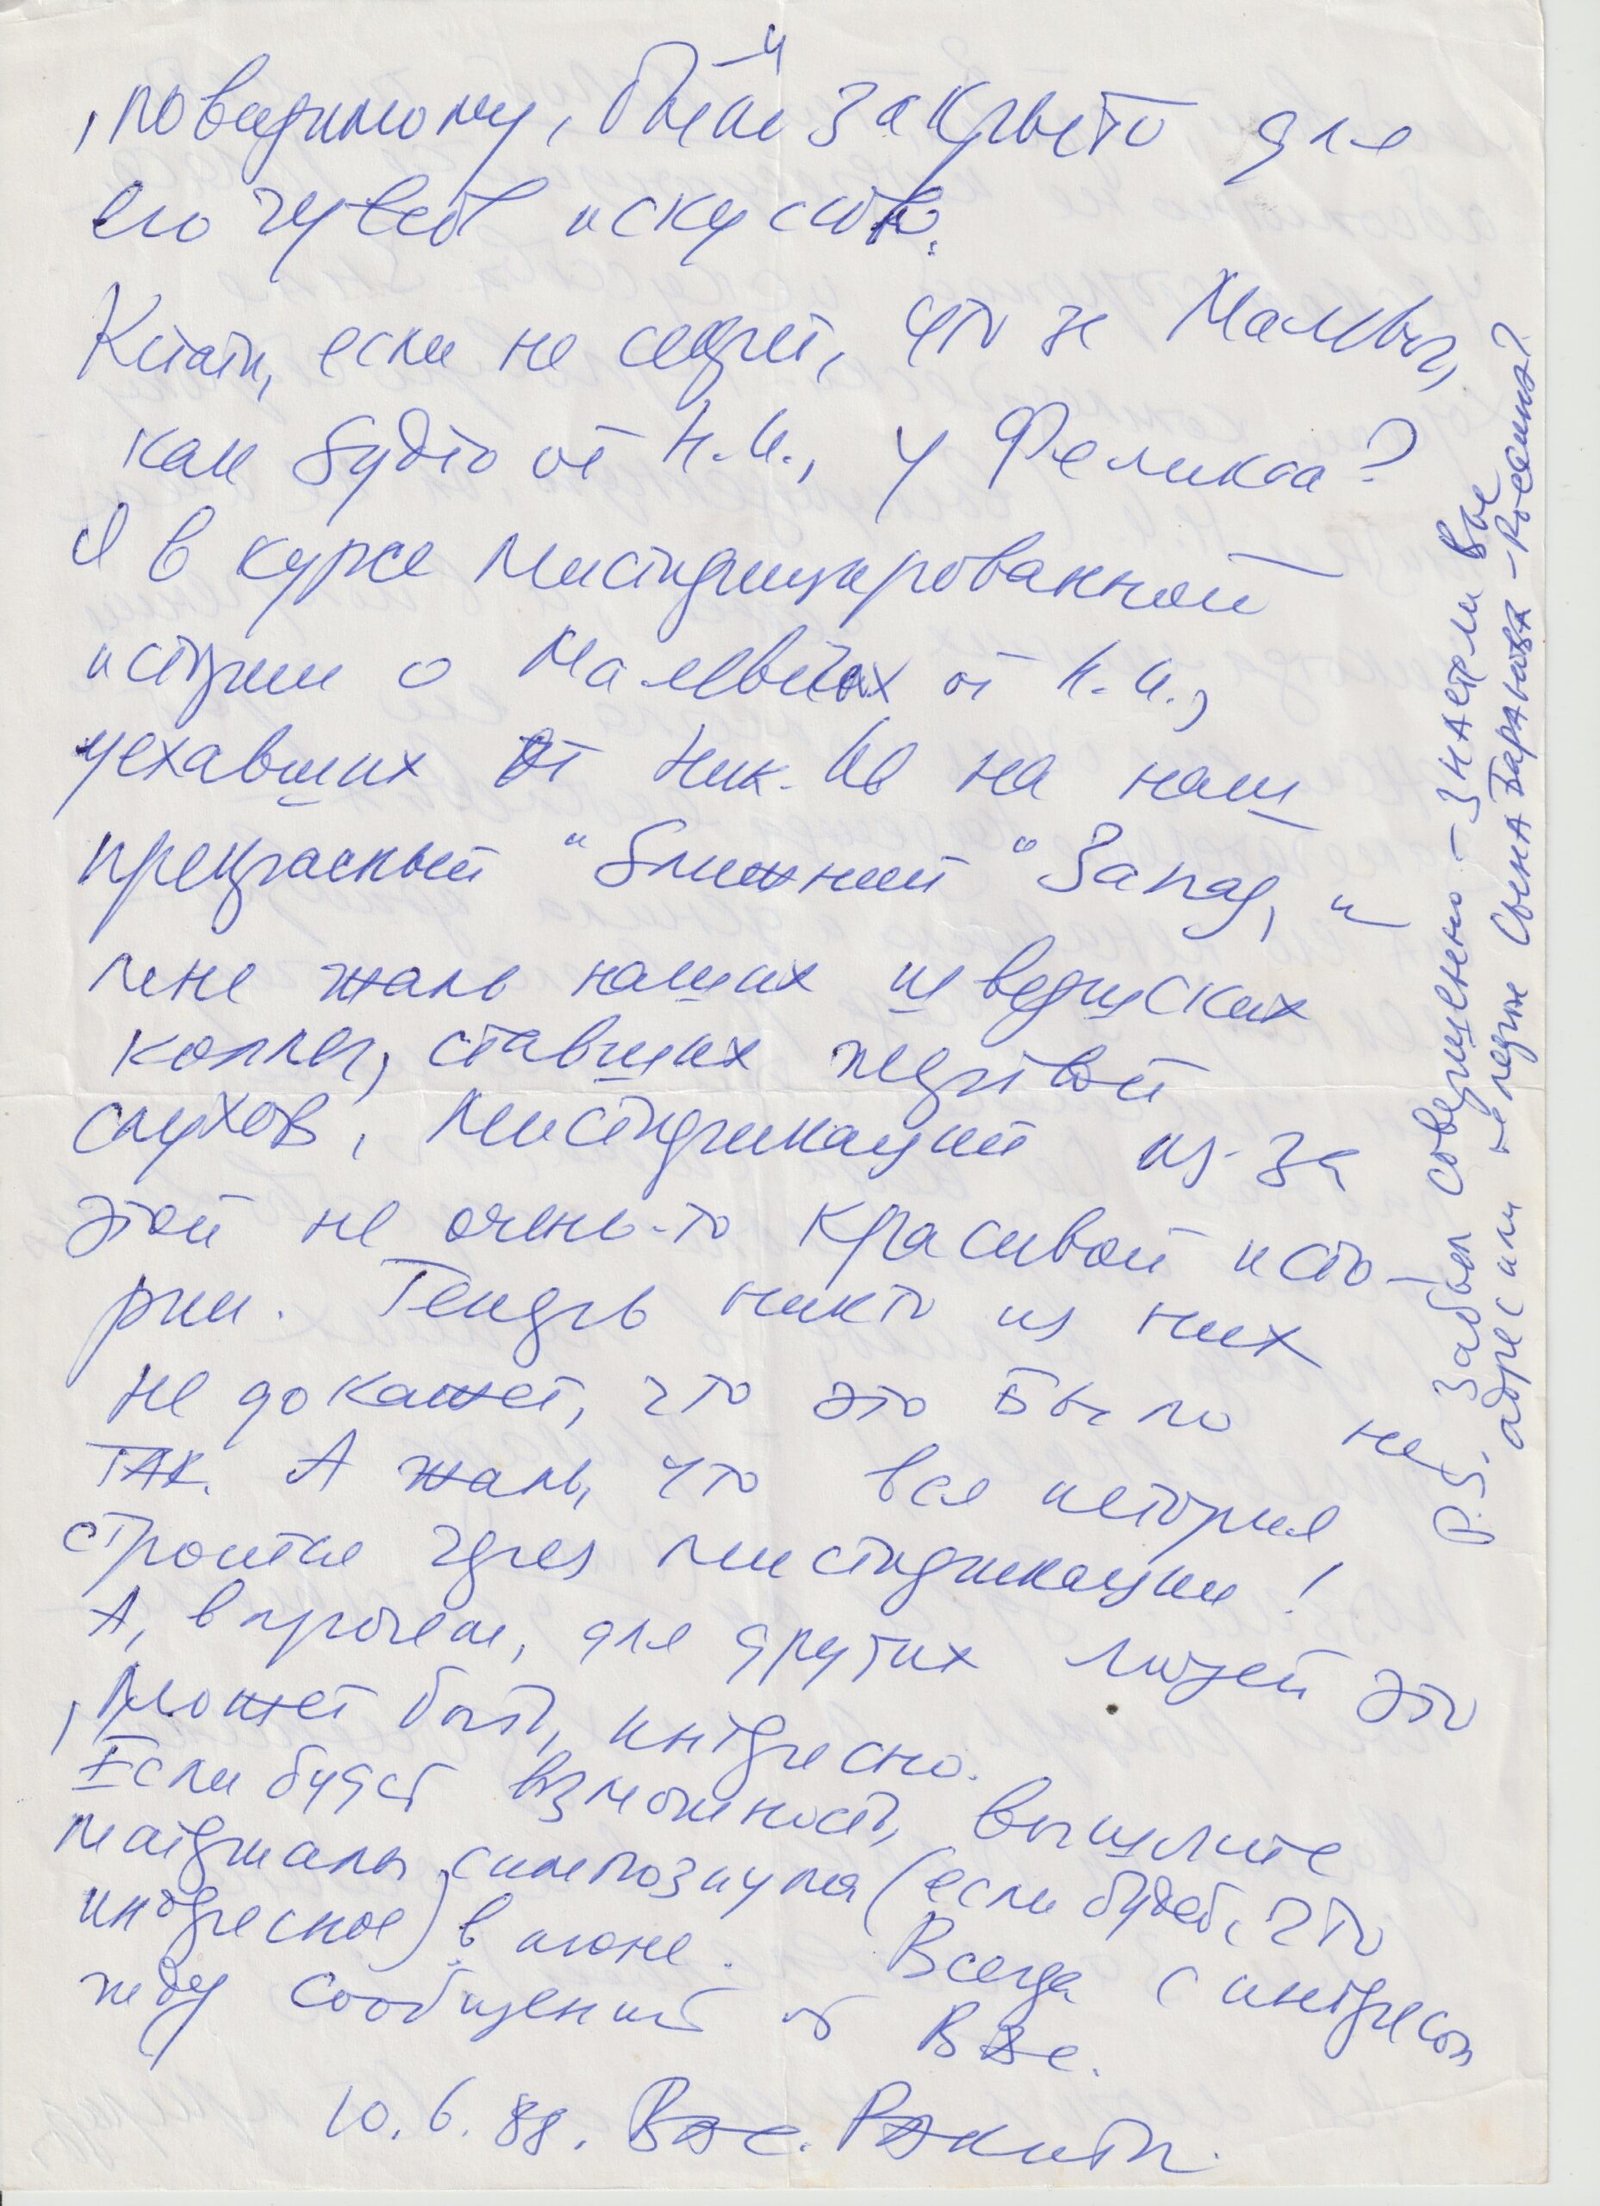 4
, повидимому, было закрыто для
его чувств искусство.
Кстати, если не секрет, что за Малевич,
как будто от Н.И., у Феликса?
Я в курсе мистифицированной
истории о Малевичах от Н.И.,
уехавших от Ник. Ив на наш
прекрасный "ближний" Запад, и
мне жаль наших шведских
коллег, ставших жертвой
слухов, мистификаций из-за
этой не очень-то красивой исто-
рии. Теперь никто из них
не докажет, что это было не
так. А жаль, что вся история
строится через мистификации!
А, впрочем, для других людей это
, может быть, интересно.
Если будет возможность, вышлите
материалы симпозиума (если будет, что
интересное) в июне. Всегда с интересом
жду сообщений от Вас.
10.6.88. Вас. Ракитин.
P.S. Забыл совершенно – знаете ли Вы
адрес или наследие сына Баранова-Россинэ?